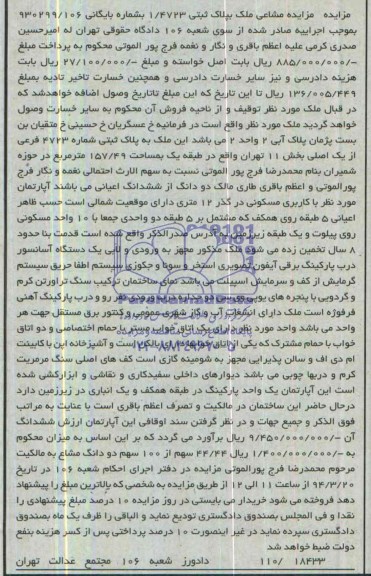 مزایده   مزایده مشاعی ملک بپلاک ثبتی ۱/۴۷۲۳ بشماره بایگانی ۹۳۰۲۹۹/۱۰۶
بموجب اجراییه صادر شده از سوی شعبه ۱۰۶ دادگاه حقوقی تهران له امیرحسین
صدری کرمی علیه اعظم باقری و نگار و نغمه فرج پور الموتی محکوم به پرداخت مبلغ
۸۸۵/۰۰۰/۰۰۰/- ریال بابت اصل خواسته و مبلغ ۲۷/۱۰۰/۰۰۰/- ریال بابت
هزینه دادرسی و نیز سایر خسارت دادرسی و همچنین خسارت تاخیر تادیه بمبلغ
۱۳۶/۰۰۵/۴۴۹ ریال تا این تاریخ که این مبلغ تاتاریخ وصول اضافه خواهدشد که
در قبال ملک مورد نظر توقیف و از ناحیه فروش آن محکوم به سایر خسارت وصول
خواهد گردید ملک مورد نظر واقع است در فرمانیه خ عسگریان خ حسینی خ متقیان بن
بست پژمان پلاک آبی ۲ واحد ۲ می باشد این ملک به پلاک ثبتی شماره ۴۷۲۳ فرعی
از یک اصلی بخش ۱۱ تهران واقع در طبقه یک بمساحت ۱۵۷/۴۹ مترمربع در حوزه
شمیران بنام محمدرضا فرج پور الموتی نسبت به سهم الارث احتمالی نغمه و نگار فرج
پور الموتی و اعظم باقری طاری مالک دو دانگ از ششدانگ اعیانی می باشند آپارتمان
مورد نظر با کاربری مسکونی در گذر ۱۲ متری دارای موقعیت شمالی است حسب ظاهر
اعیانی ۵ طبقه روی همکف که مشتمل بر ۵ طبقه دو واحدی جمعا با ۱۰ واحد مسکونی
روی پیلوت و یک طبقه زیرزمین به آدرس صدرالذکر واقع شده است قدمت بنا حدود
۸ سال تخمین زده می شود ملک مذکور مجهز به ورودی و لابی یک دستگاه آسانسور
درب پارکینگ برقی آیفون تصویری استخر و سونا و جکوزی سیستم اطفا حریق سیستم
گرمایش از کف و سرمایش اسپیلت می باشد نمای ساختمان ترکیب سنگ تراورتن کرم
و گردویی با پنجره های یو پی وی سی دو جداره درب ورودی نفر رو و درب پارکینگ آهنی
فرفوژه است ملک دارای انشعاب آب و گاز شهری عمومی و کنتور برق مستقل جهت هر
واحد می باشد واحد مورد نظر دارای یک اتاق خواب مستر با حمام اختصاصی و دو اتاق
خواب با حمام مشترک که یکی از اتاق خواب ها دارای بالکن است و آشپزخانه اپن با کابینت
ام دی اف و سالن پذیرایی مجهز به شومینه گازی است کف های اصلی سنگ مرمریت
کرم و دربها چوبی می باشد دیوارهای داخلی سفیدکاری و نقاشی و ابزارکشی شده
است این آپارتمان یک واحد پارکینگ در طبقه همکف و یک انباری در زیرزمین دارد
درحال حاضر این ساختمان در مالکیت و تصرف اعظم باقری است با عنایت به مراتب
فوق الذکر و جمیع جهات و در نظر گرفتن سند اوقافی این آپارتمان ارزش ششدانگ
آن ۹/۴۵۰/۰۰۰/۰۰۰/- ریال برآورد می گردد که بر این اساس به میزان محکوم
به ۱/۴۰۰/۰۰۰/۰۰۰/- ریال ۴۴/۴۴ سهم از ۱۰۰ سهم دو دانگ مشاع به مالکیت
مرحوم محمدرضا فرج پور الموتی مزایده در دفتر اجرای احکام شعبه ۱۰۶ در تاریخ
۹۴/۳/۲۰ از ساعت ۱۱ الی ۱۲ از طریق مزایده به شخصی که بالاترین مبلغ را پیشنهاد
دهد فروخته می شود خریدار می بایستی در روز مزایده ۱۰ درصد مبلغ پیشنهادی را
نقدا و فی المجلس بصندوق دادگستری تودیع نماید و الباقی را ظرف یک ماه بصندوق
دادگستری سپرده نماید در غیر اینصورت ۱۰ درصد پرداختی پس از کسر هزینه بنفع
دولت ضبط خواهد شد
۱۸۴۳۳ / ۱۱۰    دادورز شعبه ۱۰۶ مجتمع عدالت تهران